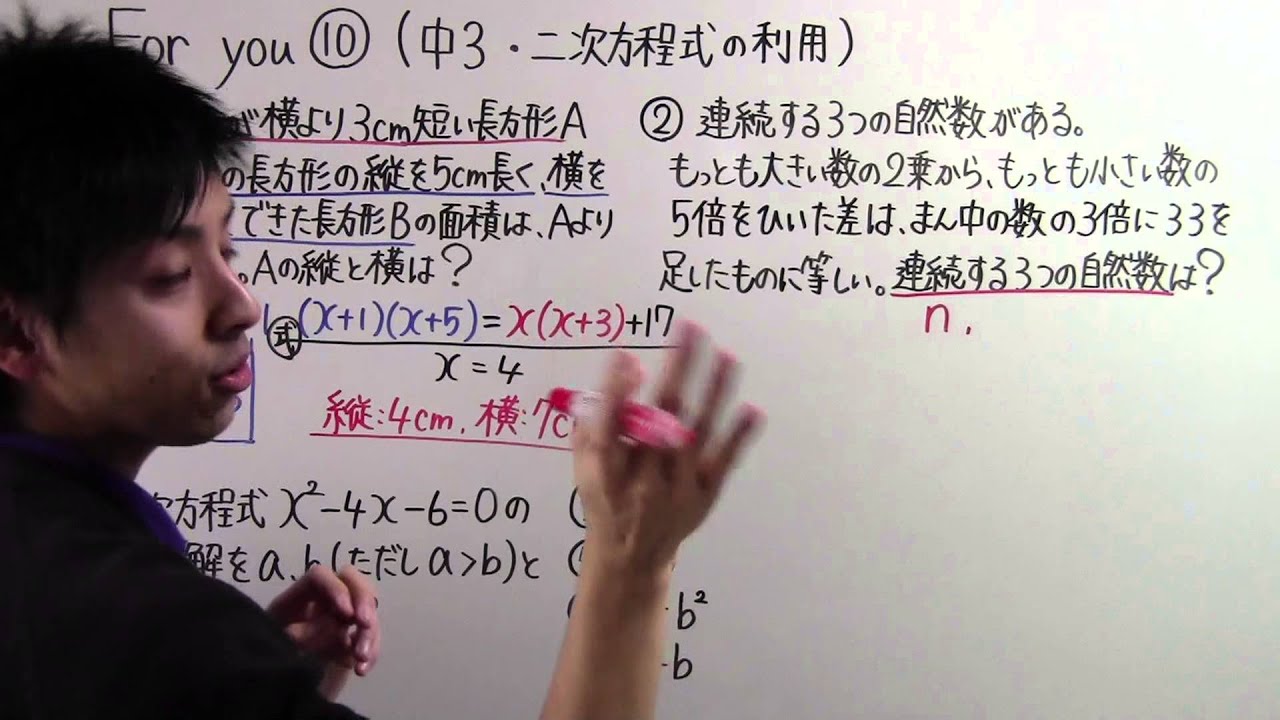 For you ⑩ (中3・二次方程式の利用)
横より3cm短い長方形A
の長方形の縦を5cm長く、横を
できた長方形Bの面積は、Aより
。Aの縦と横は?
式 (x+1)(x+5)=x(x+3)+17
x=4
縦:4cm, 横:7c
② 連続する3つの自然数がある。
もっとも大きい数の2乗から、もっとも小さい数の
5倍をひいた差は、まん中の数の3倍に33を
足したものに等しい。連続する3つの自然数は?
n.
次方程式 x²-4x-6=0の
解をa、b(ただしa>b)と
b²
b